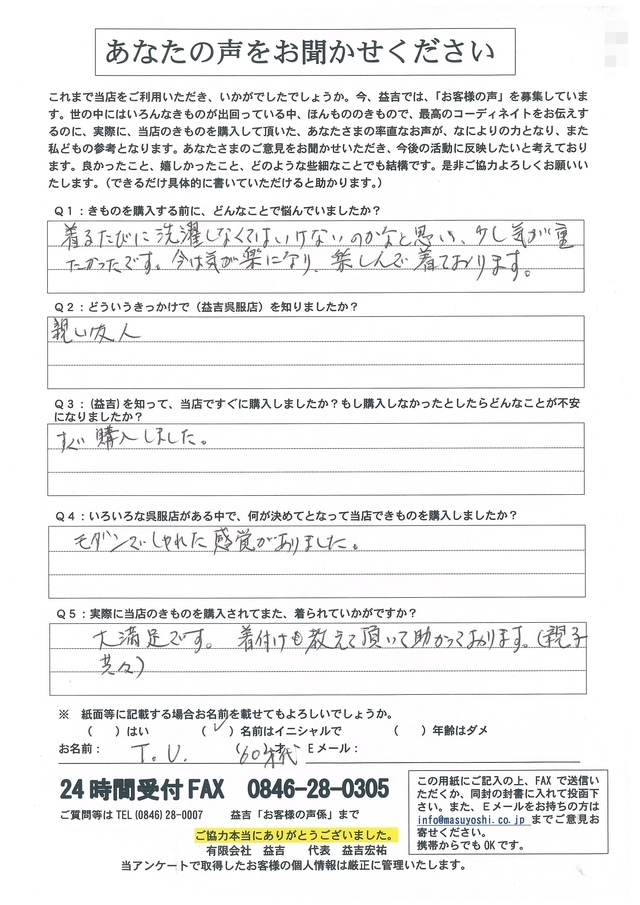 あなたの声をお聞かせください
これまで当店をご利用いただき、いかがでしたでしょうか。今、益吉では、「お客様の声」を募集していま
す。世の中にはいろんなきものが出回っている中、ほんもののきもので、最高のコーディネイトをお伝えす
るのに、実際に、当店のきものを購入して頂いた、あなたさまの率直なお声が、なによりの力となり、また
私どもの参考となります。あなたさまのご意見をお聞かせいただき、今後の活動に反映したいと考えており
ます。良かったこと、嬉しかったこと、どのような些細なことでも結構です。是非ご協力よろしくお願いい
たします。(できるだけ具体的に書いていただけると助かります。)
Q1:きものを購入する前に、どんなことで悩んでいましたか?
着るたびに洗濯しなくてはいけないのかなと思い、少し気が重
たかったです。今は気が楽になり、楽しんで着ております。
Q2:どういうきっかけで(益吉呉服店)を知りましたか?
親しい友人
Q3:(益吉)を知って、当店ですぐに購入しましたか?もし購入しなかったとしたらどんなことが不安
になりましたか?
すぐ購入しました。
Q4:いろいろな呉服店がある中で、何が決めてとなって当店できものを購入しましたか?
モダンでしゃれた感覚がありました。
Q5:実際に当店のきものを購入されてまた、着られていかがですか?
大満足です。着付けも教えて頂いて助かっております。(親子
共々)
※ 紙面等に記載する場合お名前を載せてもよろしいでしょうか。
( )はい (✓)名前はイニシャルで ( )年齢はダメ
お名前: T.U. ('60才代 Eメール:
24時間受付FAX 0846-28-0305
ご質問等はTEL(0846)28-0007 益吉「お客様の声係」まで
ご協力本当にありがとうございました。
有限会社 益吉 代表 益吉宏祐
この用紙にご記入の上、FAXで送信い
ただくか、同封の封書に入れて投函下
さい。また、Eメールをお持ちの方は
info@masuyoshi.co.jp までご意見お
寄せください。
携帯からでもOKです。
当アンケートで取得したお客様の個人情報は厳正に管理いたします。